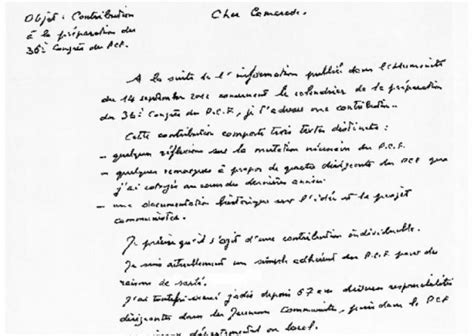 Objet : Contribution
à la préparation du
36è Congrès du PCF.
Cher Camarade.
A la suite de l'information publiée dans l'Humanité
du 14 septembre 2012 concernant le calendrier de la préparation
du 36è Congrès du P.C.F, je t'adresse une contribution..
Cette contribution comporte trois textes distincts :
- quelques réflexions sur la mutation nécessaire du P.C.F.
- quelques remarques à propos de quatre dirigeants du PCF que
j'ai cotoyés au cours des dernières années
- une documentation historique sur l'idée et le projet
communistes.
Je précise qu'il s'agit d'une contribution individuelle.
Je suis actuellement un simple adhérent du P.C.F pour des
raisons de santé.
J'ai toutefois exercé jadis depuis 67 ans diverses responsabilités
dirigeantes dans les Jeunesses Communistes, puis dans le P.C.F
niveaux départemental ou local.